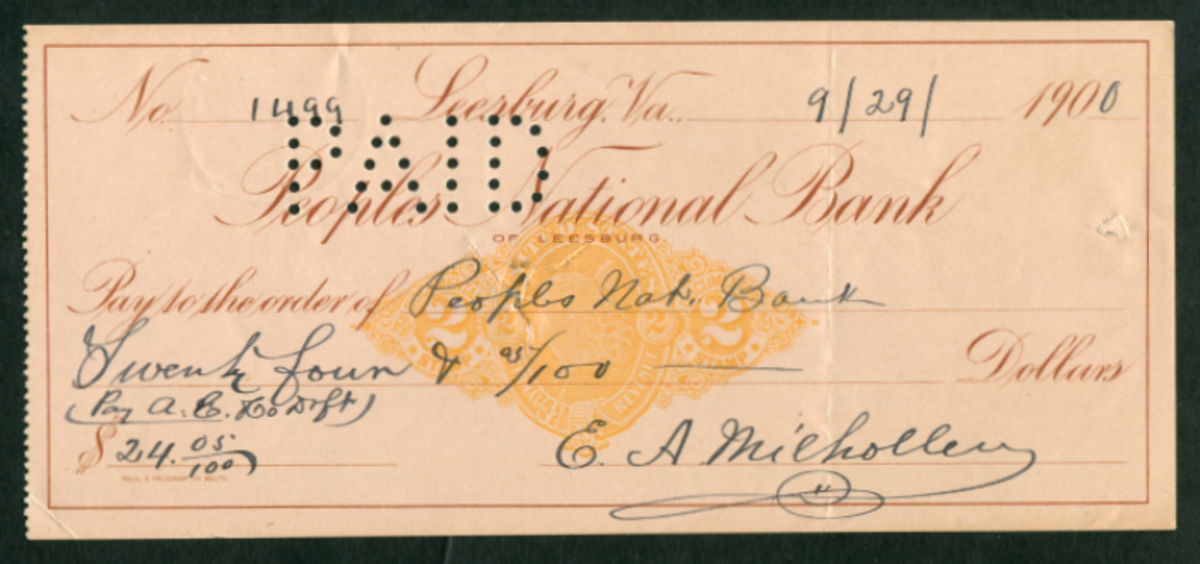 No. 1499 Leesburg, Va. 9/29/ 1900
PAID
Peoples National Bank
OF LEESBURG
Pay to the order of Peoples Nat. Bank
2 UNITED STATES 2
STAMP REVENUE STAMP
Twenty four & 05/100 Dollars
(Pay A. E. Co Drft)
$ 24.05/100
E. A Milhollen